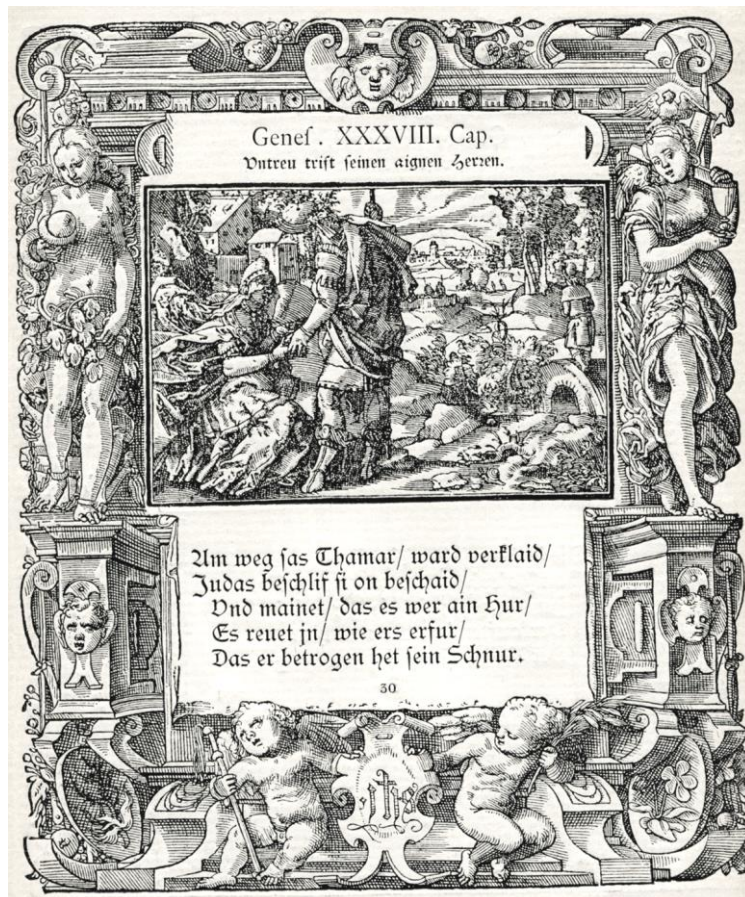 Geneſ. XXXVIII. Cap.
Vntreu trift ſeinen aignen Herzen.
Am weg ſas Thamar/ ward verklaid/
Judas beſchlif ſi on beſchaid/
Vnd mainet/ das es wer ain Hur/
Es reuet jn/ wie ers erfur/
Das er betrogen het ſein Schnur.
30